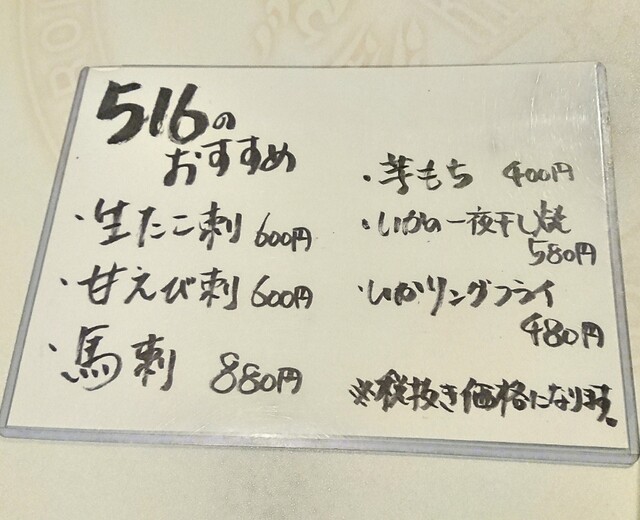 516の
おすすめ
・生たこ刺 600円
・甘えび刺 600円
・馬刺 880円
・芋もち 400円
・いかの一夜干し焼
580円
・いかリングフライ
480円
※税抜き価格になります。